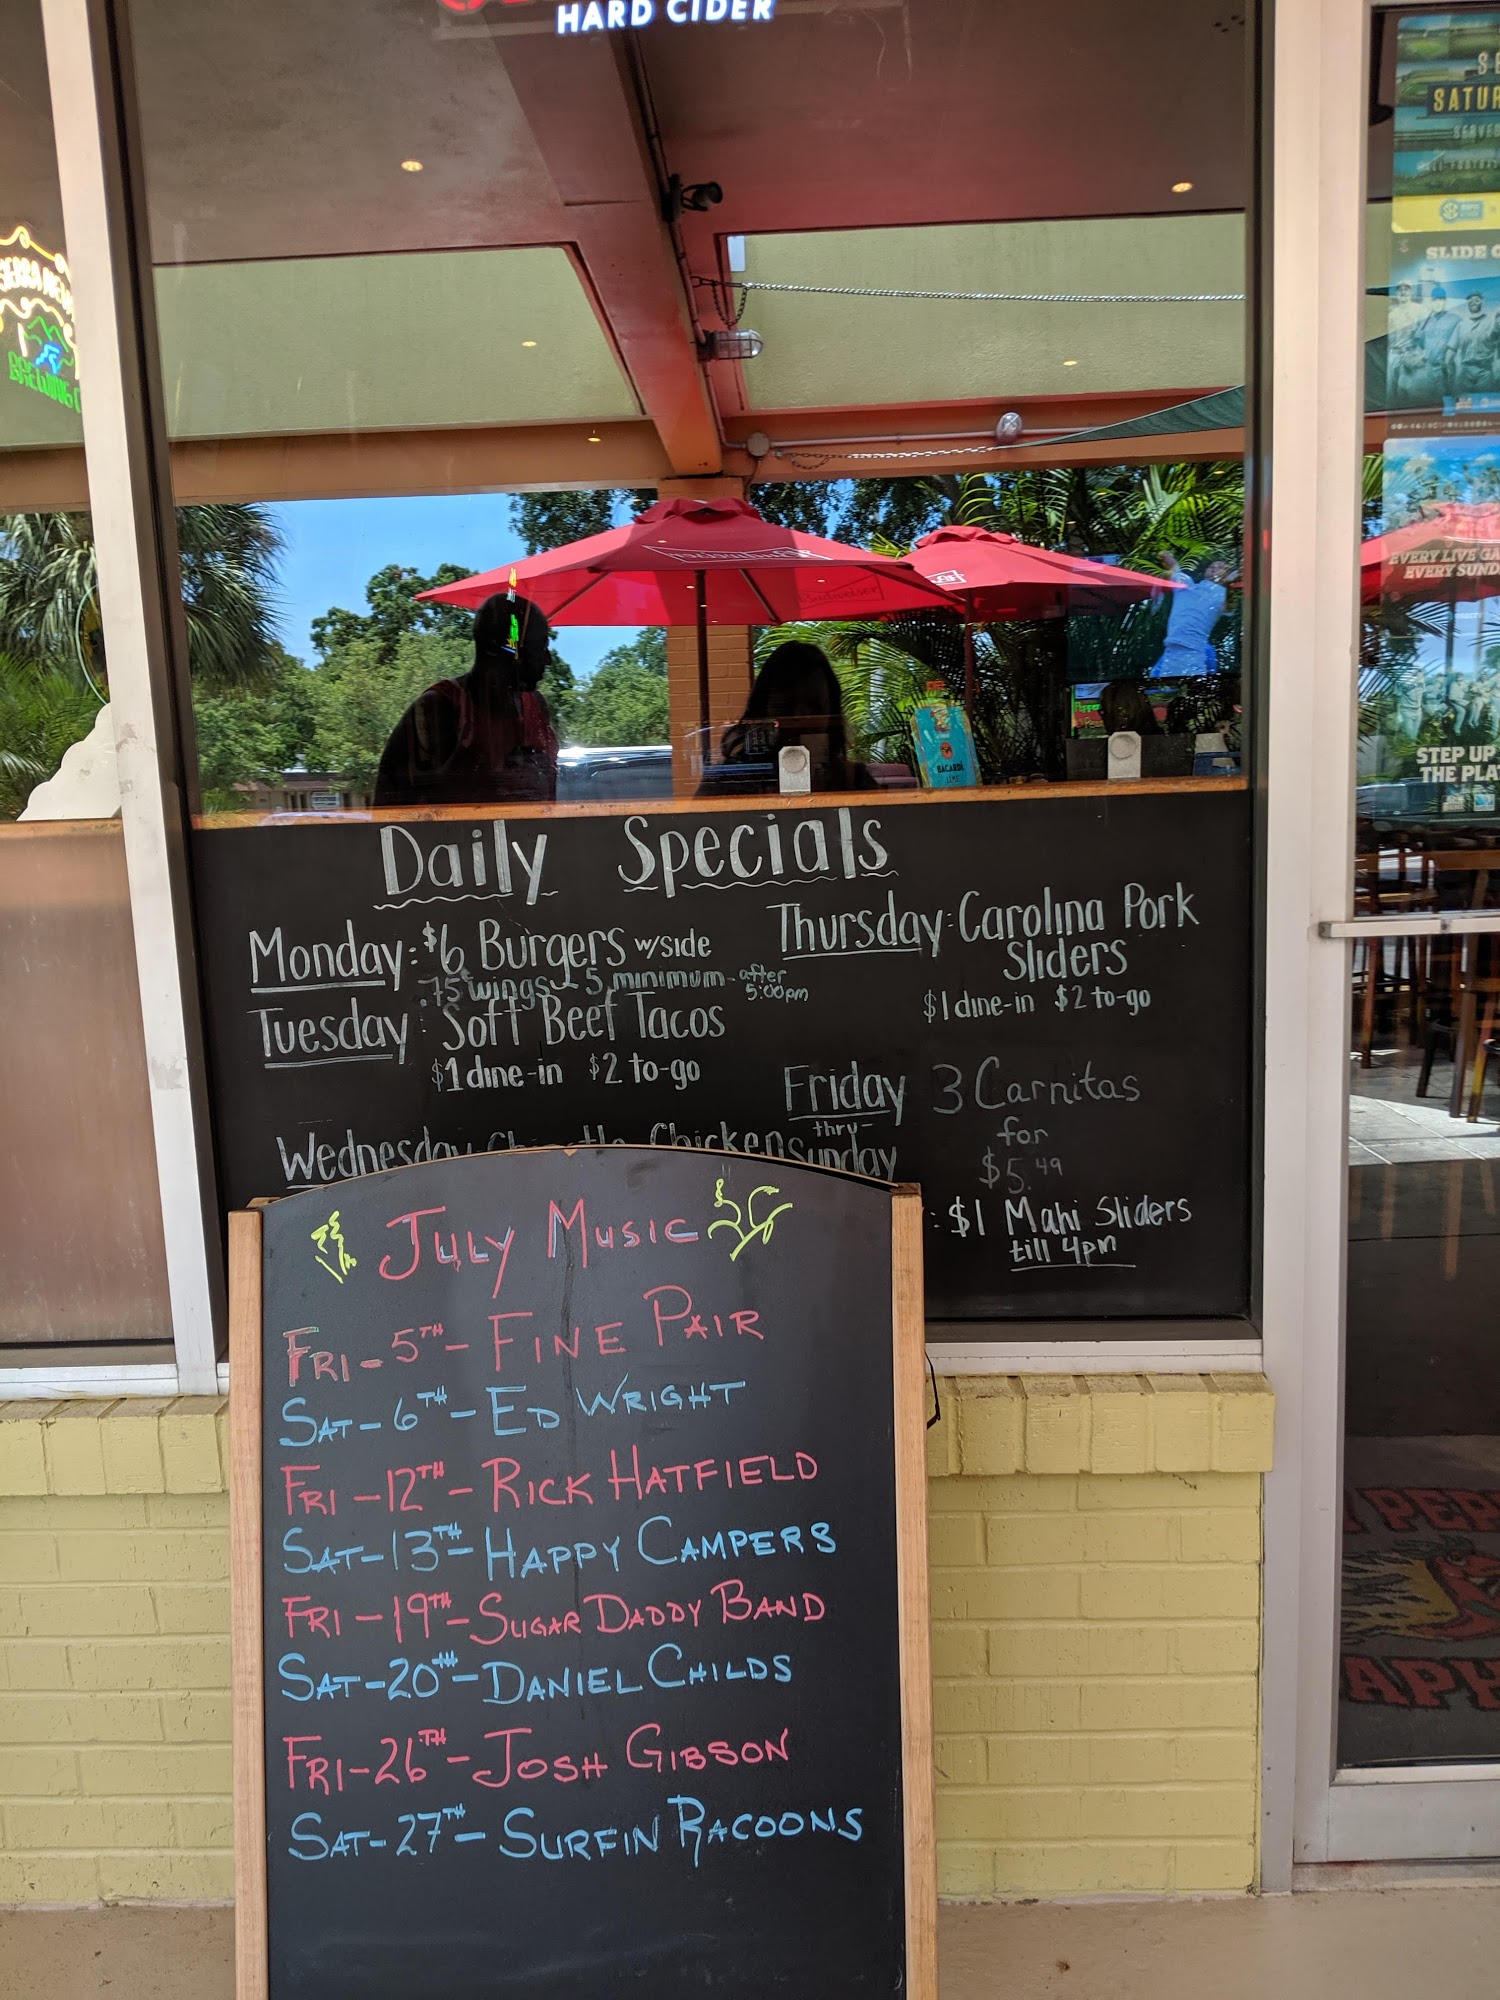 HARD CIDER
BREWING
SATUR
SERVED
SLIDE
EVERY LIVE GA
EVERY SUND
STEP UP
THE PLA
Budweiser
BACARDI
LIME
Daily Specials
Monday: $6 Burgers w/side
.75¢ wings - 5 minimum - after
5:00pm
Tuesday: Soft Beef Tacos
$1 dine-in $2 to-go
Wednesday Chicken
Thursday: Carolina Pork
Sliders
$1 dine-in $2 to-go
Friday 3 Carnitas
thru- for
Sunday $5.49
: $1 Mahi Sliders
till 4pm
July Music
Fri - 5TH - FINE PAIR
SAT - 6TH - ED WRIGHT
FRI - 12TH - RICK HATFIELD
SAT - 13TH - HAPPY CAMPERS
FRI - 19TH - SUGAR DADDY BAND
SAT - 20TH - DANIEL CHILDS
FRI - 26TH - JOSH GIBSON
SAT - 27TH - SURFIN RACOONS